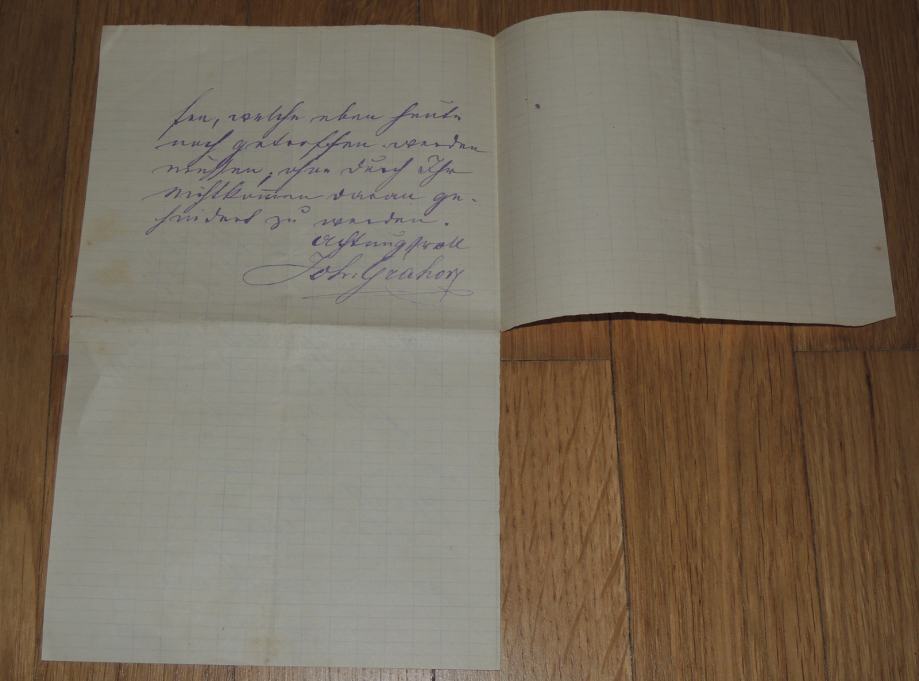 fen, welche eben heute
noch getroffen werden
müssen, ohne durch Ihr
Nichtkommen daran ge-
hindert zu werden.
Achtungsvoll
Joh. Grahor